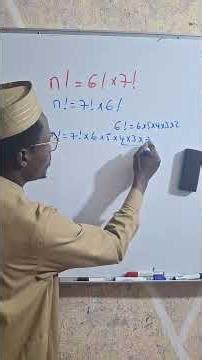 n! = 6! × 7!
n! = 7! × 6!
6! = 6×5×4×3×2
! = 7! × 6 × 5 × 4 × 3 ×